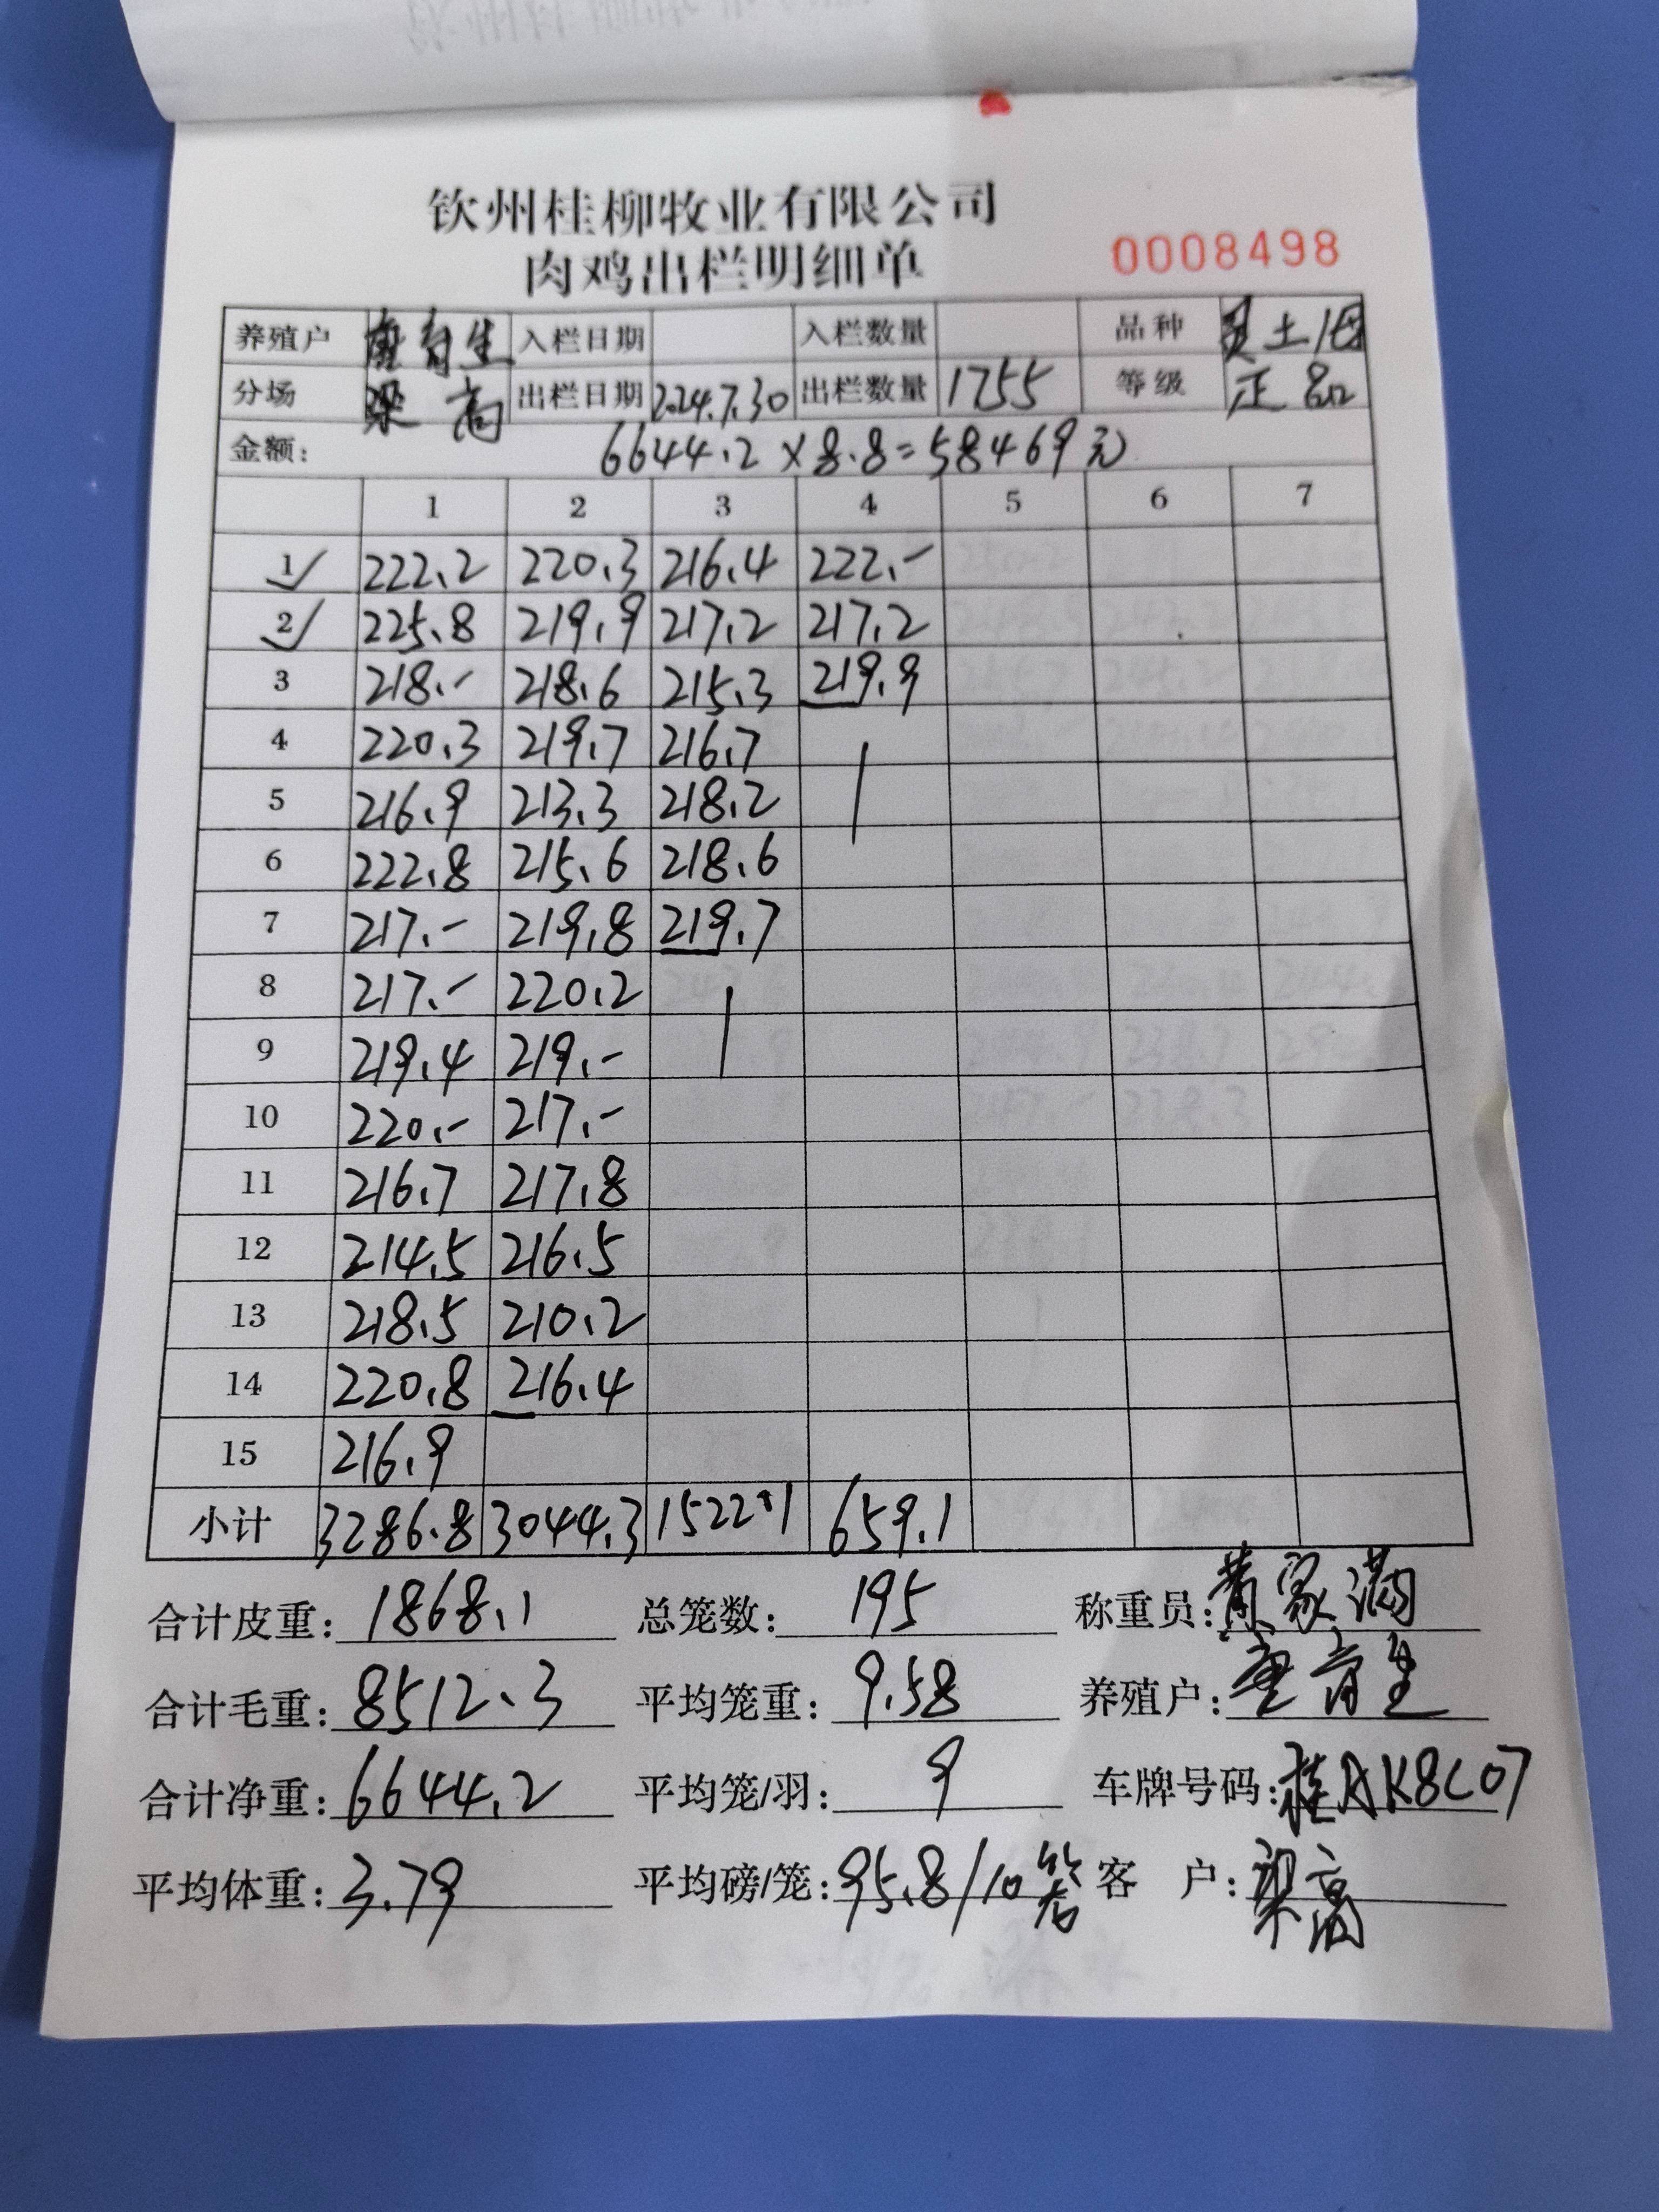 钦州桂柳牧业有限公司
肉鸡出栏明细单 0008498
养殖户 入栏日期 入栏数量 品种 土
分场 梁高 出栏日期 2024.7.30 出栏数量 1755 等级 正品
金额: 6644.2×8.8=58469元
1 2 3 4 5 6 7
1✓ 222.2 220.3 216.4 222.-
2✓ 225.8 219.9 217.2 217.2
3 218.- 218.6 215.3 219.9
4 220.3 219.7 216.7
5 216.9 213.3 218.2
6 222.8 215.6 218.6
7 217.- 219.8 219.7
8 217.- 220.2
9 219.4 219.-
10 220.- 217.-
11 216.7 217.8
12 214.5 216.5
13 218.5 210.2
14 220.8 216.4
15 216.9
小计 3286.8 3044.3 1522.1 659.1
合计皮重: 1868.1 总笼数: 195 称重员: 黄家满
合计毛重: 8512.3 平均笼重: 9.58 养殖户:
合计净重: 6644.2 平均笼/羽: 9 车牌号码: 桂AK8C07
平均体重: 3.79 平均磅/笼: 95.8/10 客 户: 梁高